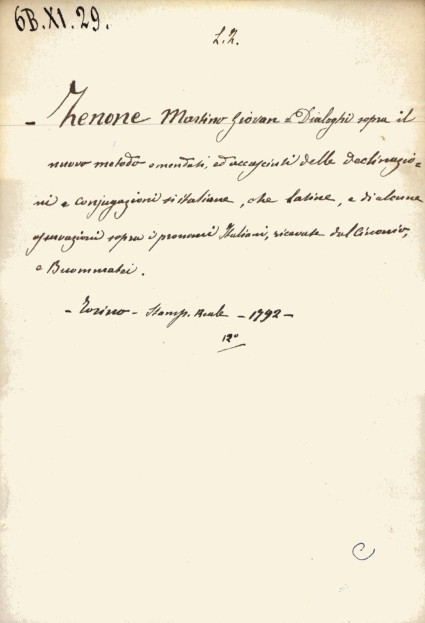 6B.XI.29.
L.Z.
- Zenone Martino Giovan - Dialoghi sopra il
nuovo metodo emendati, ed accresciuti delle declinazio=
ni e conjugazioni sì italiane, che latine, e di alcune
osservazioni sopra i pronomi Italiani, ricavate dal Cinonio,
e Buommatei.
- Torino - Stamp. Reale - 1792 -
12°
C